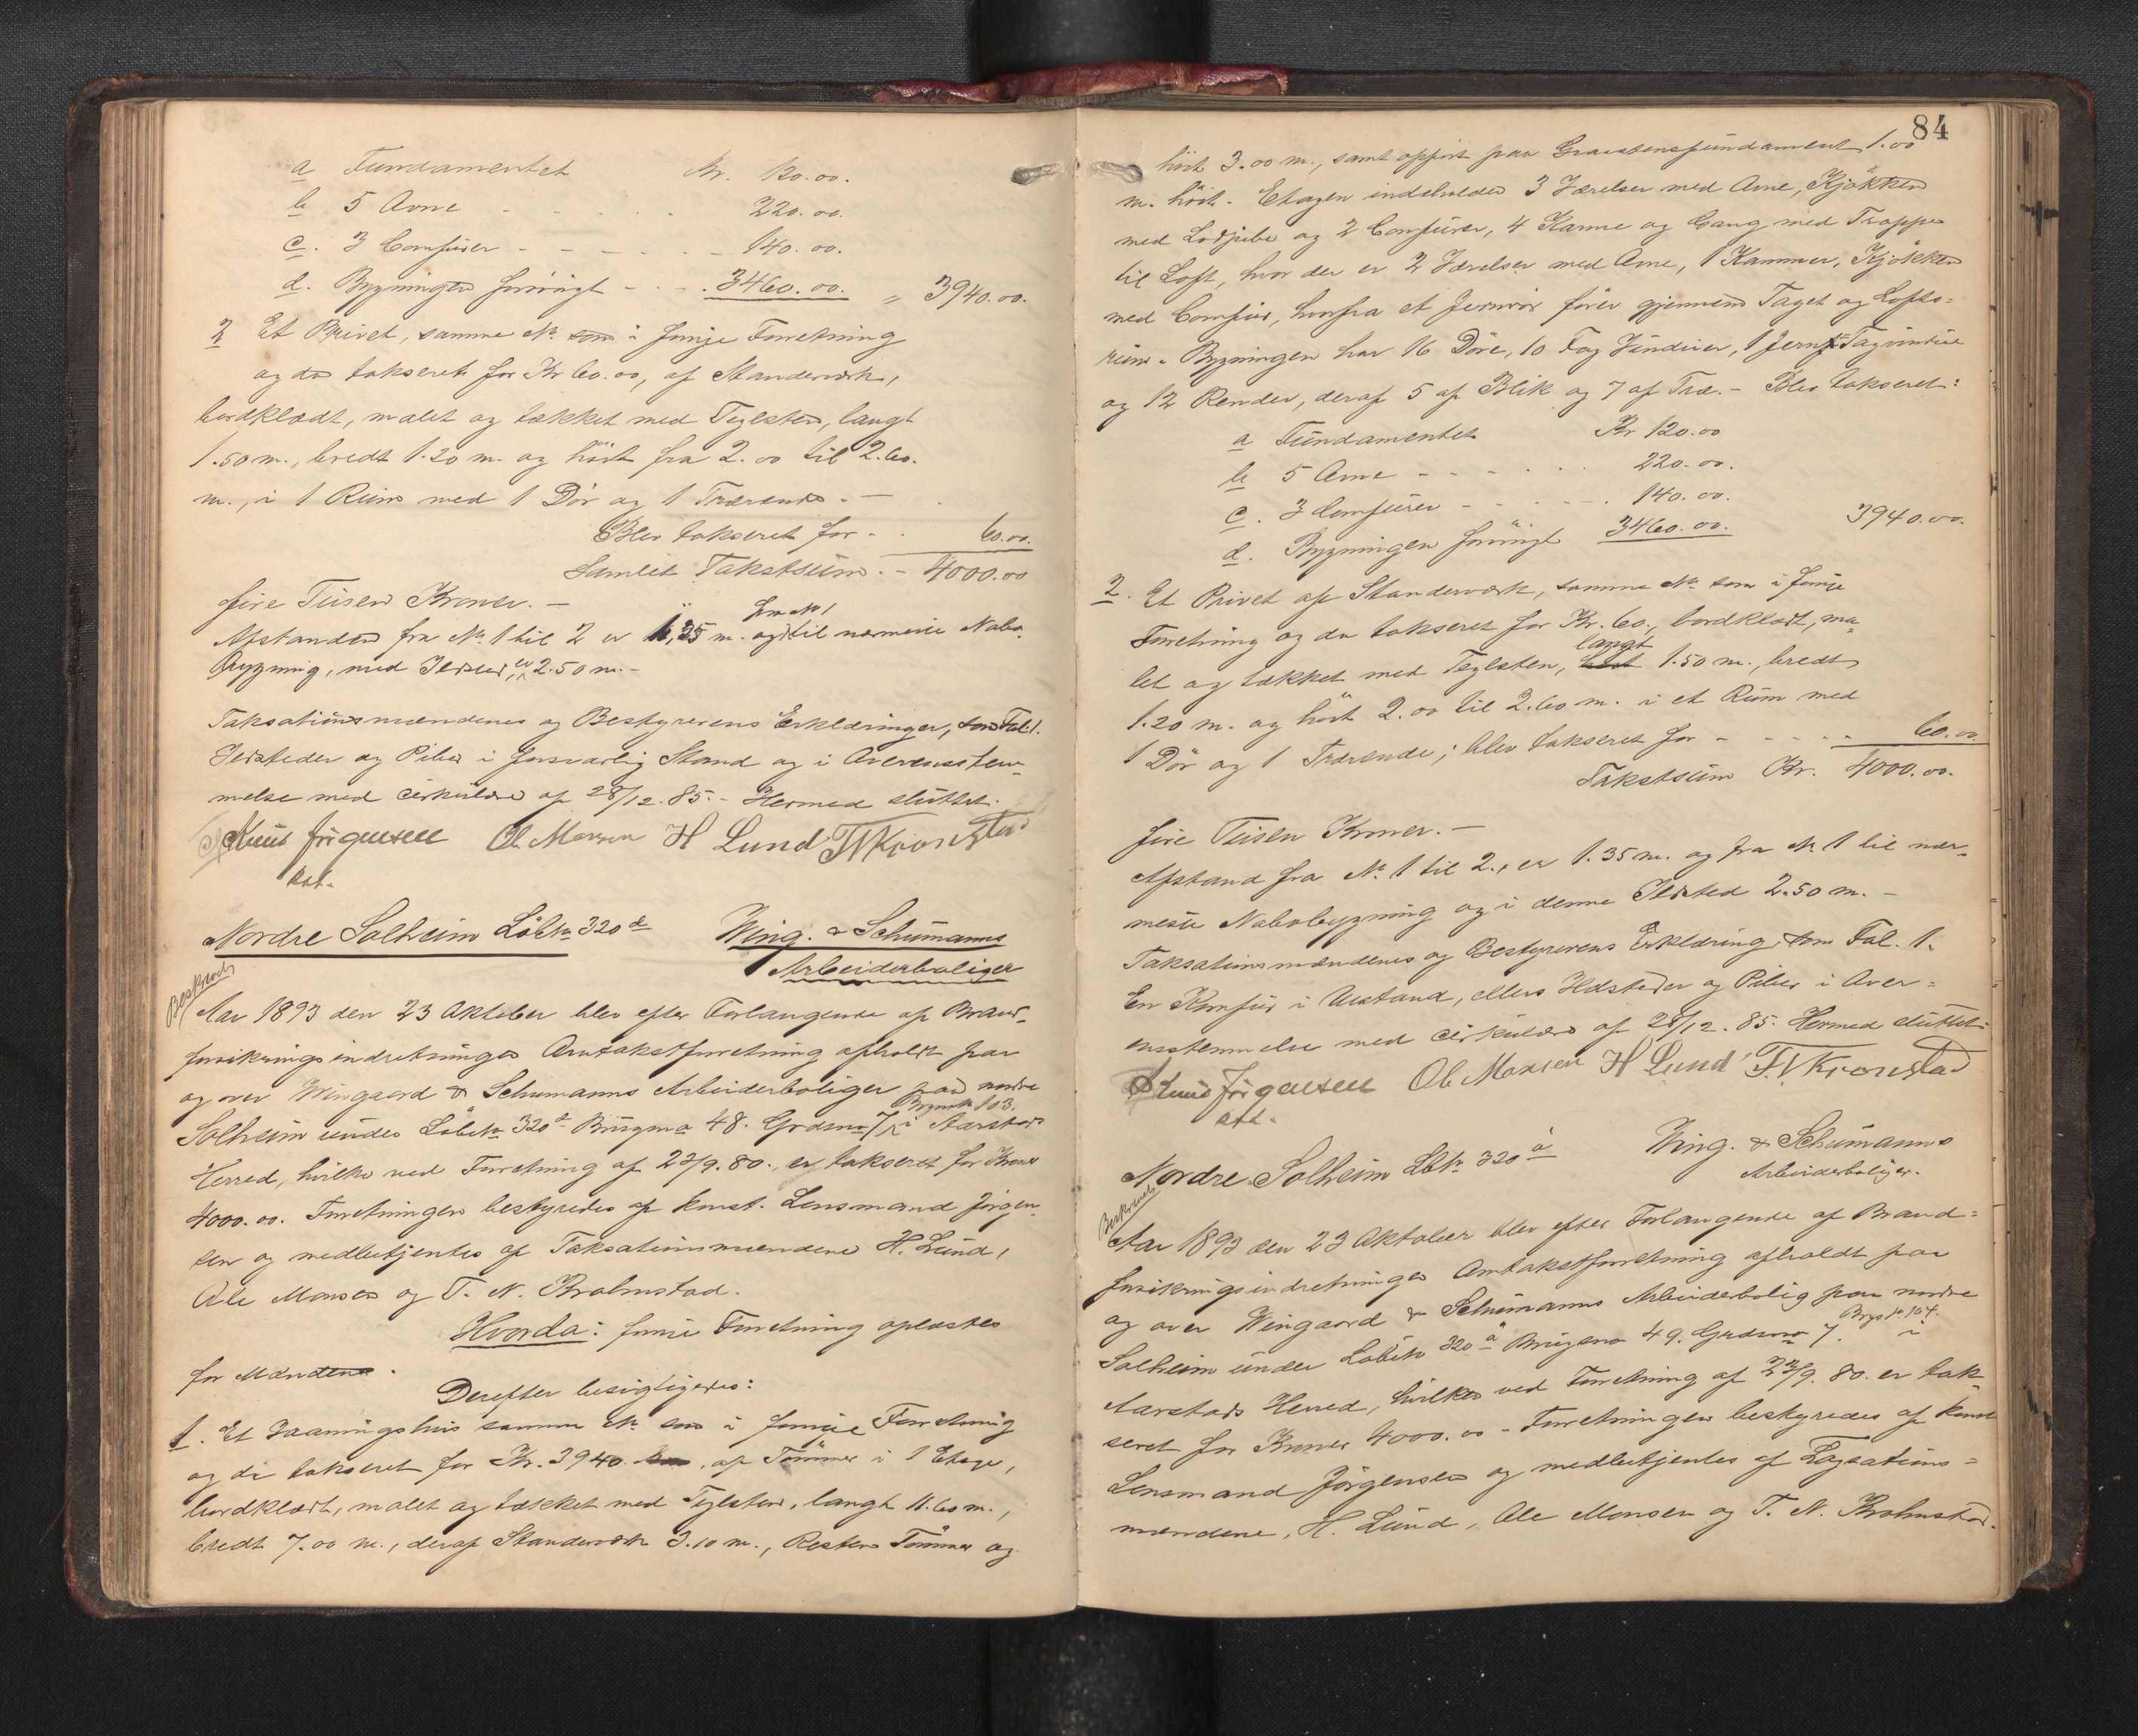 a Fundamentet Kr. 120.00.
b 5 Arne - - - - - 220.00.
c. 3 Comfurer - - - - - 140.00.
d. Bygningen forövrigt - - - 3460.00. " 3940.00.
2 Et Privet, samme No. som i forrige Forretning
og da takseret for Kr 60.00, af Standerværk,
bordklædt, malet og tækket med Teglsten, langt
1.50 m., bredt 1.20 m. og höit fra 2.00 til 2.60.
m., i 1 Rum med 1 Dör og 1 Trærende. -
Blev takseret for - . 60.00.
Samlet Takstsum. - 4000.00
fire Tusen Kroner. -
Afstanden fra No. 1 til 2 er 1,35 m. og fra No 1 til nærmeste Nabo-
bygning, med Ildsted er 2.50 m. -
Taksationsmændenes og Bestyrerens Erklæringer, som Fol. 1.
Ildsteder og Piber i forsvarlig Stand og i Overensstem-
melse med cirkulære af 28/12. 85. - Hermed sluttet.
Knud Jörgensen Ol Monsen H Lund T N Kronstad
kst.
Nordre Solheim Löbeno 320 d Wing. & Schumanns
Arbeiderboliger
Beskrevet
Aar 1893 den 23 Oktober blev efter Forlangende af Brand-
forsikringsindretningen Omtakstforretning afholdt paa
og over Wingaard & Schumanns Arbeiderboliger paa nordre
Solheim under Löbeno 320 d Brugsno 48. Gardsno 7, Bygno 103. i Aarstad
Herred, hvilke ved Forretning af 22/9. 80., er takseret for Kroner
4000.00. Forretningen bestyredes af konst. Lensmand Jörgen-
sen og medbetjentes af Taksationsmændene H. Lund,
Ole Monsen og T. N. Krohnstad.
Hvorda: forrige Forretning oplæstes
for Mændene.
Derefter besigtigedes:
1. Et Vaaningshus samme No. som i forrige Forretning
og da takseret for Kr. 3940. af Tömmer i 1 Etage,
bordklædt, malet og tækket med Teglsten, langt 11.60 m.,
bredt 7.00 m., deraf Standerværk 3.10 m., Resten Tömmer og
84
höit 3.00 m., samt opfört paa Graastensfundament 1.00
m. höit. - Etagen indeholder 3 Værelser med Arne, Kjökken
med Lodpibe og 2 Comfurer, 4 Kamre og Gang med Trappe
til Loft, hvor der er 2 Værelser med Arne, 1 Kammer, Kjökken
med Comfur, hvorfra et Jernrör förer gjennem Taget og Lofts-
rum. Bygningen har 16 Döre, 10 Fag Vinduer, 1 Jern Tagvindue
og 12 Render, deraf 5 af Blik og 7 af Træ. - Blev takseret:
a Fundamentet Kr 120.00
b 5 Arne - - - - - 220.00.
c. 3 Comfurer - - - - 140.00.
d. Bygningen forövrigt 3460.00. 3940.00.
2. Et Privet af Standerværk, samme No. som i forrige
Forretning og da takseret for Kr. 60., bordklædt, ma-
let og tækket med Teglsten, langt 1.50 m., bredt
1.20 m. og höit 2.00 til 2.60 m. i et Rum med
1 Dör og 1 Trærende; blev takseret for - - - - 60.00
Takstsum Kr. 4000.00.
fire Tusen Kroner. -
Afstand fra No. 1 til 2., er 1.35 m. og fra No 1 til nær-
meste Nabobygning og i denne Ildsted 2.50 m. -
Taksationsmændenes og Bestyrerens Erklæring som Fol. 1.
En Komfur i Ustand, ellers Ildsteder og Piber i Over-
ensstemmelse med cirkulære af 28/12. 85. Hermed sluttet.
Knud Jörgensen Ol Monsen H Lund T. N Kronstad
kst.
Nordre Solheim Lbno 320 a Wing. & Schumanns
Arbeiderboliger.
Beskrevet
Aar 1893 den 23 Oktober blev efter Forlangende af Brand-
forsikringsindretningen Omtakstforretning afholdt paa
og over Wingaard & Schumanns Arbeiderbolig paa nordre
Solheim under Löbeno 320 a Brugsno 49. Gardsno 7. Bygno 104. i
Aarstads Herred, hvilke ved Forretning af 22/9. 80. er tak-
seret for Kroner 4000.00 - Forretningen bestyredes af konst
Lensmand Jörgensen og medbetjentes af Taxations-
mændene, H. Lund, Ole Monsen og T. N. Krohnstad.